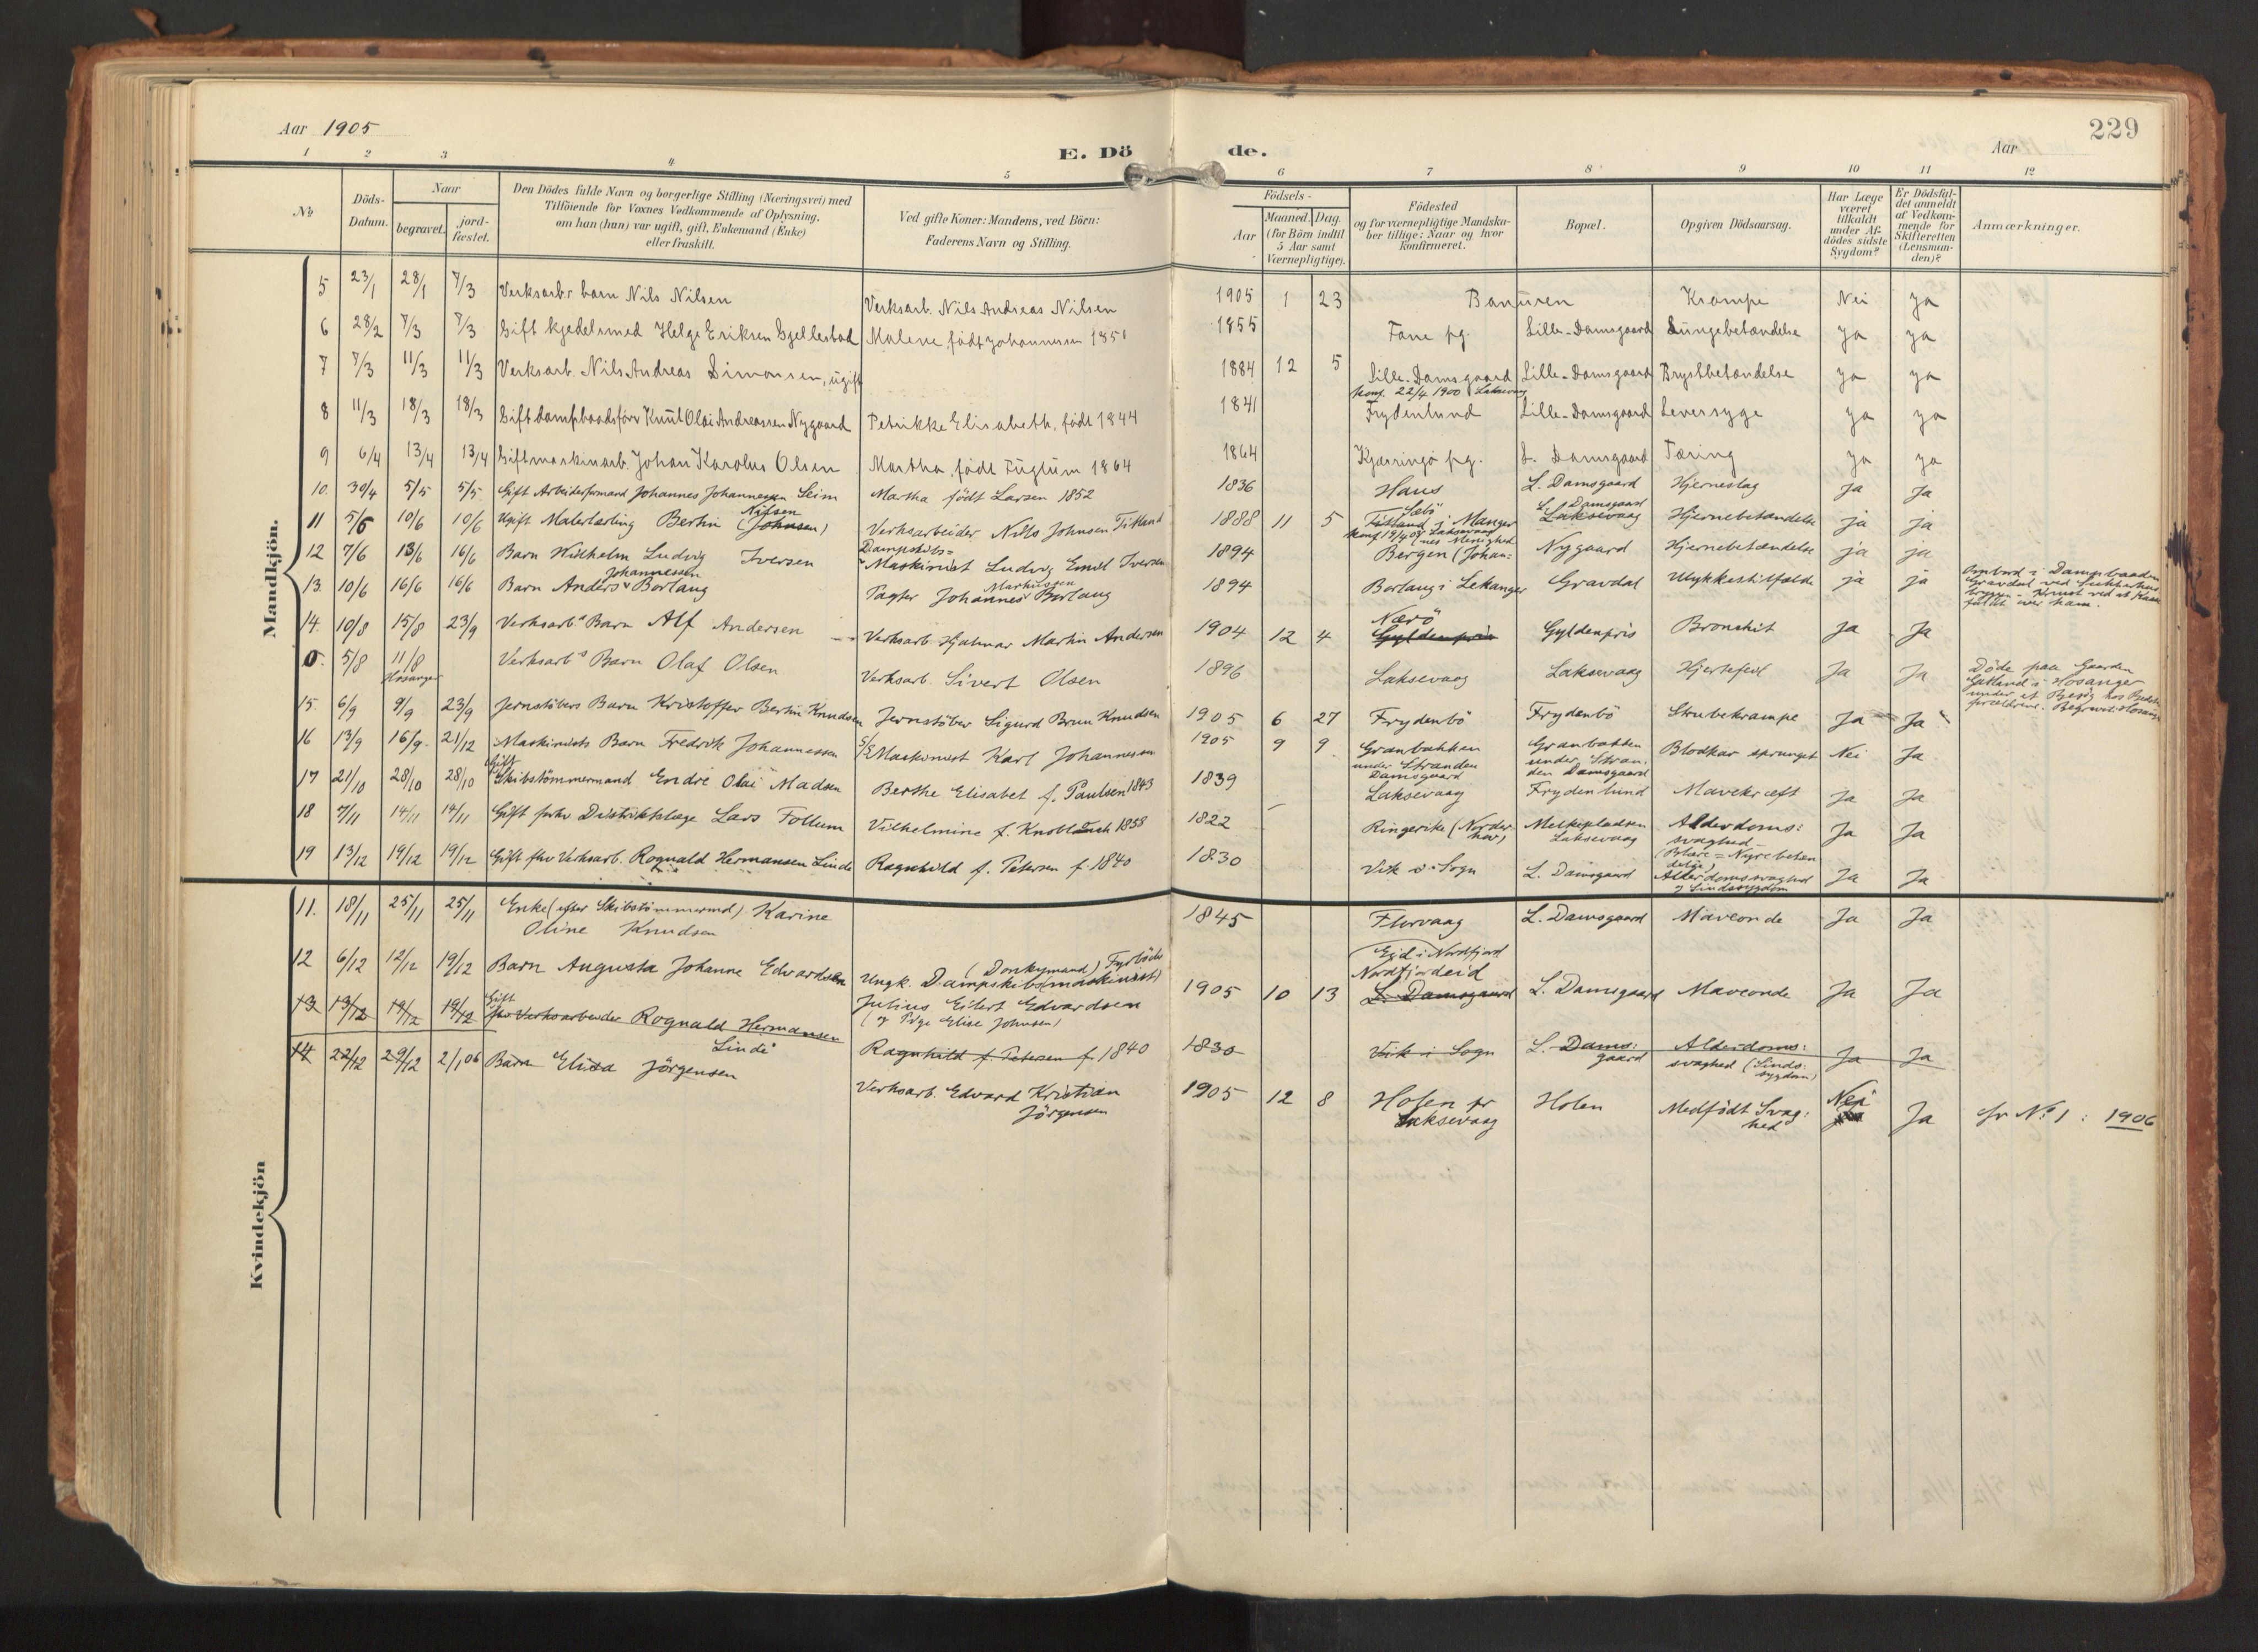 Aar 1905
E. Dö de.
Aar
229
1 2 3 4 5 6 7 8 9 10 11 12
No
Döds-Datum.
Naar begravet. jordfæstet.
Den Dödes fulde Navn og borgerlige Stilling (Næringsvei) med
Tilföiende for Voxnes Vedkommende af Oplysning,
om han (hun) var ugift, gift, Enkemand (Enke)
eller fraskilt.
Ved gifte Koner: Mandens, ved Börn:
Faderens Navn og Stilling.
Födsels-
Aar Maaned. Dag.
(for Börn indtil 5 Aar samt Værnepligtige).
Födested
og for værnepligtige Mandskaber tillige: Naar og hvor Konfirmeret.
Bopæl.
Opgiven Dödsaarsag.
Har Læge været tilkaldt under Afdödes sidste Sygdom?
Er Dödsfaldet anmeldt af Vedkommende for Skifteretten (Lensmanden)?
Anmærkninger.
Mandkjön.
5 23/1 28/1 7/3 Verksarbr barn Nils Nilsen Verksarb. Nils Andreas Nilsen 1905 1 23 Banuren Krampe Nei Ja
6 28/2 7/3 7/3 Gift kjedelsmed Helge Eriksen Gjellestad Malene, født Johannessen 1851 1855 Fane pg. Lille-Damsgaard Lungebetændelse Ja Ja
7 7/3 11/3 11/3 Verksarb. Nils Andreas Simonsen, ugift 1884 12 5 Lille-Damsgaard Lille-Damsgaard Brystbetændelse Ja Ja
Konf. 22/4 1900 Laksevaag
8 11/3 18/3 18/3 Gift dampbaadsfører Knut Olai Andreassen Nygaard Petrikke Elisabeth, født 1844 1841 Frydenlund Lille-Damsgaard Leversyge Ja Ja
9 6/4 13/4 13/4 Gift maskinarb. Johan Karolus Olsen Martha, født Fuglum 1864 1864 Kjærringø pg. L. Damsgaard Tæring Ja Ja
10. 30/4 5/5 5/5 Gift Arbeidsformand Johannes Johannessen Seim Martha født Larsen 1852 1836 Haus L. Damsgaard Hjerneslag Ja Ja
11 5/6 10/6 10/6 Ugift Malerlærling Bertin Nilsen (Johnsen) Verksarbeider Nils Johnsen Titland 1888 11 5 Sæbö Titland i Manger L. Damsgaard Laksevaag Hjernebetændelse ja ja
12 7/6 13/6 16/6 Barn Wilhelm Ludvig Iversen Dampskibs= Maskinist Ludvig Emil Iversen 1894 Bergen (Johan= nes Menighed Nygaard Hjernebetændelse ja ja
13. 10/6 16/6 16/6 Barn Anders Johannessen Borlaug Pagter Johannes Markussen Borlaug 1894 Borlaug i Lekanger Gravdal Ulykkestilfælde ja ja Ombord i Dampbaaden
Gravdal ved
14. 10/8 15/8 23/9 Verksarb.s Barn Alf Andersen Verksarb. Hjalmar Martin Andersen 1904 12 4 Nærö Gyldenpris Gyldenpris Bronchit Ja Ja
0. 5/8 11/8 Hosanger Verksarb.s Barn Olaf Olsen Verksarb. Sivert Olsen 1896 Laksevaag Laksevaag Hjertefeil Ja Ja Döde paa Gaarden
i Hosanger
under et Besög hos Bedste
forældrene. Begravet i Hosanger
15. 6/9 9/9 23/9 Jernstöbers Barn Kristoffer Bertin Knudsen Jernstöber Sigurd Brun Knudsen 1905 6 27 Frydenbö Frydenbö Strubekrampe Ja Ja
16 13/9 16/9 21/12 Maskinists Barn Fredrik Johannessen S/S Maskinist Karl Johannessen 1905 9 9 Granbakken under Stranden Damsgaard Granbakken under Stranden Damsgaard Blodkar sprunget Nei Ja
17 21/10 28/10 28/10 Gift Skibstömmermand Endre Olai Madsen Berthe Elisabet f. Paulsen 1843 1839 Laksevaag Frydenlund Mavekræft Ja Ja
18 7/11 14/11 14/11 Gift fhv Distriktslæge Lars Follum Vilhelmine f. Knoblauch 1858 1822 Ringerike (Norderhov) Melkepladsen Laksevaag Alderdoms: svaghed Ja Ja
19 13/12 19/12 19/12 Gift fhv Verksarb. Rognald Hermansen Linde Ragnhild f. Petersen f. 1840 1830 Vik i Sogn L. Damsgaard (Blære = Nyrebetændelse) Alderdomssvaghed og Sindssygdom Ja Ja
Kvindekjön
11. 18/11 25/11 25/11 Enke (efter Skibstömmermd) Karine Oline Knudsen 1845 Florvaag L. Damsgaard Maveonde Ja Ja
12 6/12 12/12 19/12 Barn Augusta Johanne Edvardsen Ungk. Dampskibs(maskinist) (Donkymand) Fyrböder Julius Eilert Edvardsen (og Pige Elise Johnsen) 1905 10 13 Eid i Nordfjord Nordfjordeid L. Damsgaard L. Damsgaard Maveonde Ja Ja
13 13/12 19/12 19/12 Gift fhv Verksarbeider Rognald Hermansen Linde Ragnhild f. Petersen f. 1840 1830 Vik i Sogn L. Dams: gaard Alderdoms: svaghed (Sinds: sygdom) Ja Ja
14 22/12 29/12 2/1 06 Barn Elisa Jörgensen Verksarb. Edvard Kristian Jörgensen 1905 12 8 Holen pr Laksevaag Holen Medfödt Svag: hed Nei Ja Ja fr No 1: 1906